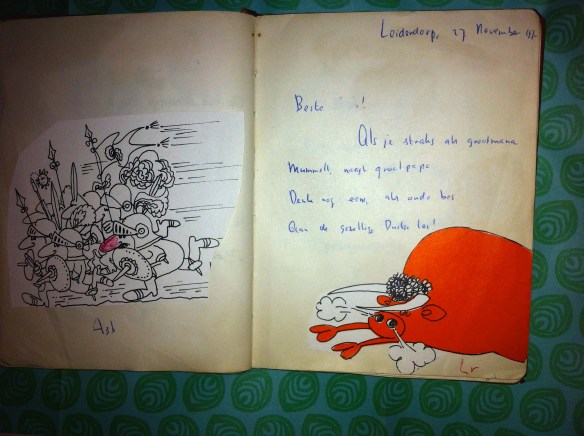 Leiderdorp, 27 November
Beste !
Als je straks als grootmama
Mummelt, naast grootpapa
Denk nog eens, als oude bes
Aan de gezellige Duitse les!